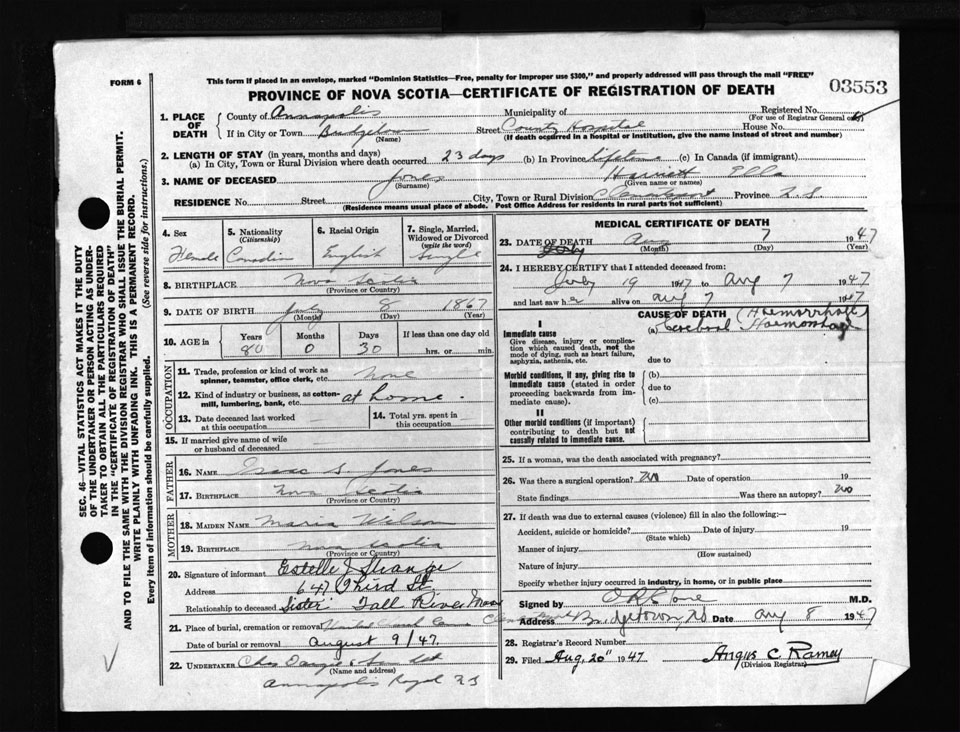 FORM 6
This form if placed in an envelope, marked "Dominion Statistics—Free, penalty for improper use $300," and properly addressed will pass through the mail "FREE"
PROVINCE OF NOVA SCOTIA—CERTIFICATE OF REGISTRATION OF DEATH
03553
1. PLACE OF DEATH
County of Annapolis Municipality of Registered No.
(For use of Registrar General only)
If in City or Town Bridgetown Street County Hospital House No.
(Name) (If death occurred in a hospital or institution, give the name instead of street and number)
2. LENGTH OF STAY (in years, months and days)
(a) In City, Town or Rural Division where death occurred 23 days (b) In Province lifetime (c) In Canada (if immigrant)
3. NAME OF DECEASED Jones Harriett Ella
(Surname) (Given name or names)
RESIDENCE No. Street City, Town or Rural Division Clementsport Province N.S.
(Residence means usual place of abode. Post Office Address for residents in rural parts not sufficient)
4. Sex
Female
5. Nationality
(Citizenship)
Canadian
6. Racial Origin
English
7. Single, Married, Widowed or Divorced
(write the word)
Single
8. BIRTHPLACE Nova Scotia
(Province or Country)
9. DATE OF BIRTH July 8 1867
(Month) (Day) (Year)
10. AGE in Years Months Days If less than one day old
80 0 30 hrs. or min.
OCCUPATION
11. Trade, profession or kind of work as spinner, teamster, office clerk, etc. None
12. Kind of industry or business, as cotton-mill, lumbering, bank, etc. at home.
13. Date deceased last worked at this occupation
14. Total yrs. spent in this occupation
15. If married give name of wife or husband of deceased
FATHER
16. NAME Isaac S. Jones
17. BIRTHPLACE Nova Scotia
(Province or Country)
MOTHER
18. MAIDEN NAME Maria Wilson
19. BIRTHPLACE Nova Scotia
(Province or Country)
20. Signature of informant Estelle J
Address 647 Third St.
Relationship to deceased Sister Fall River Mass
21. Place of burial, cremation or removal
Date of burial or removal August 9/47.
22. UNDERTAKER Chas
(Name and address)
Annapolis Royal N S
MEDICAL CERTIFICATE OF DEATH
23. DATE OF DEATH Aug 7 1947
July
(Month) (Day) (Year)
24. I HEREBY CERTIFY that I attended deceased from:
July 19 1947 to Aug 7 1947
and last saw her alive on Aug 7 1947
CAUSE OF DEATH (Haemorrhage)
I
Immediate cause
Give disease, injury or complication which caused death, not the mode of dying, such as heart failure, asphyxia, asthenia, etc.
(a) Cerebral Haemorrhage
due to
Morbid conditions, if any, giving rise to immediate cause (stated in order proceeding backwards from immediate cause).
(b)
due to
(c)
II
Other morbid conditions (if important) contributing to death but not causally related to immediate cause.
25. If a woman, was the death associated with pregnancy?
26. Was there a surgical operation? No Date of operation 19
State findings Was there an autopsy? No
27. If death was due to external causes (violence) fill in also the following:—
Accident, suicide or homicide? Date of injury 19
(State which)
Manner of injury
(How sustained)
Nature of injury
Specify whether injury occurred in industry, in home, or in public place
Signed by M.D.
Address Bridgetown NS Date Aug 8 1947
28. Registrar's Record Number
29. Filed Aug. 20" 1947 Angus C. Ramey
(Division Registrar)
SEC. 46—VITAL STATISTICS ACT MAKES IT THE DUTY
OF THE UNDERTAKER OR PERSON ACTING AS UNDER-
TAKER TO OBTAIN ALL THE PARTICULARS REQUIRED
IN THE "CERTIFICATE OF REGISTRATION OF DEATH"
AND TO FILE THE SAME WITH THE DIVISION REGISTRAR WHO SHALL ISSUE THE BURIAL PERMIT.
WRITE PLAINLY WITH UNFADING INK. THIS IS A PERMANENT RECORD.
Every item of information should be carefully supplied. (See reverse side for instructions.)